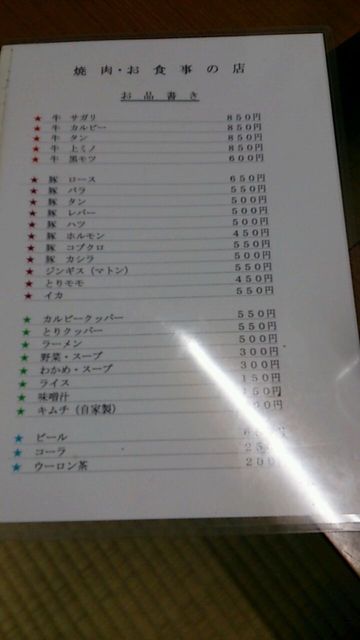 焼肉・お食事の店
お品書き
★ 牛 サガリ 850円
★ 牛 カルビー 850円
★ 牛 タン 850円
★ 牛 上ミノ 850円
★ 牛 黒モツ 600円
★ 豚 ロース 650円
★ 豚 バラ 550円
★ 豚 タン 500円
★ 豚 レバー 500円
★ 豚 ハツ 500円
★ 豚 ホルモン 450円
★ 豚 コブクロ 550円
★ 豚 カシラ 500円
★ ジンギス（マトン） 550円
★ とりモモ 450円
★ イカ 550円
★ カルビークッパー 550円
★ とりクッパー 550円
★ ラーメン 500円
★ 野菜・スープ 300円
★ わかめ・スープ 300円
★ ライス 150円
★ 味噌汁 150円
★ キムチ（自家製）
★ ビール
★ コーラ
★ ウーロン茶 200